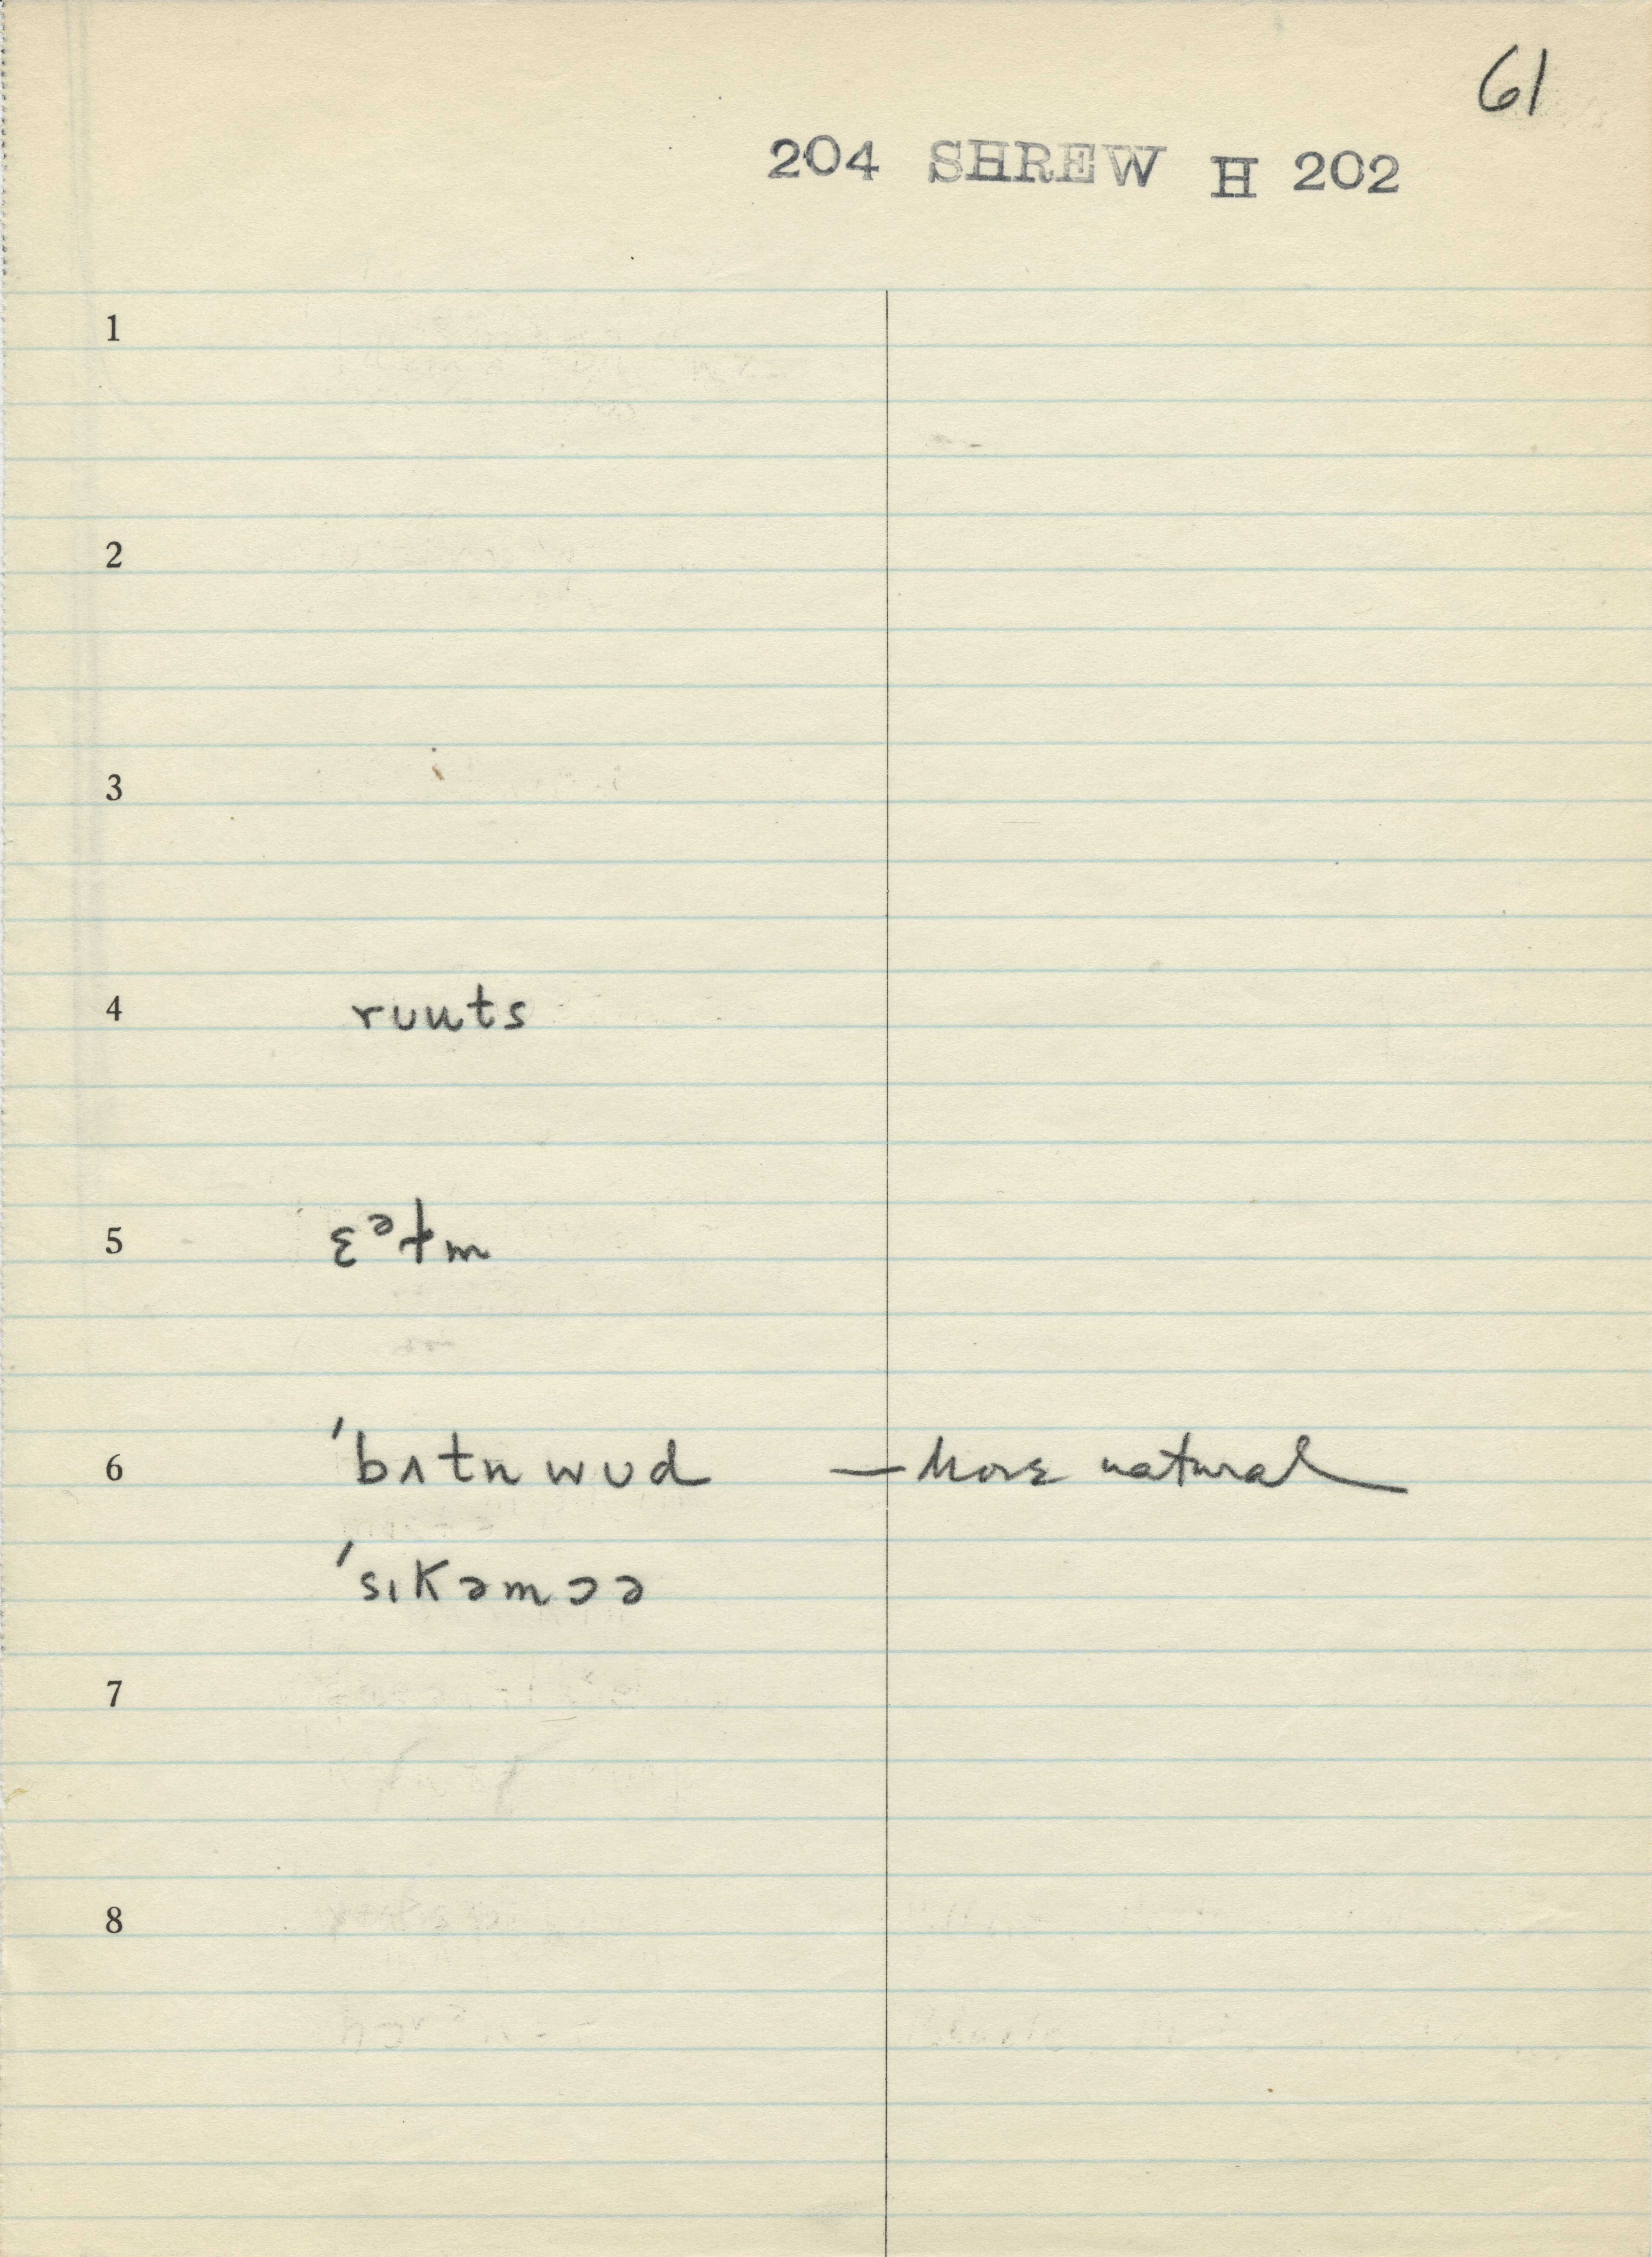 61
204 SHREW H 202
1
2
3
4 rʊuts
5 ɛᵊɫm
6 ˈbʌtnwʊd — More natural
ˈsɪkəmɔə
7
8